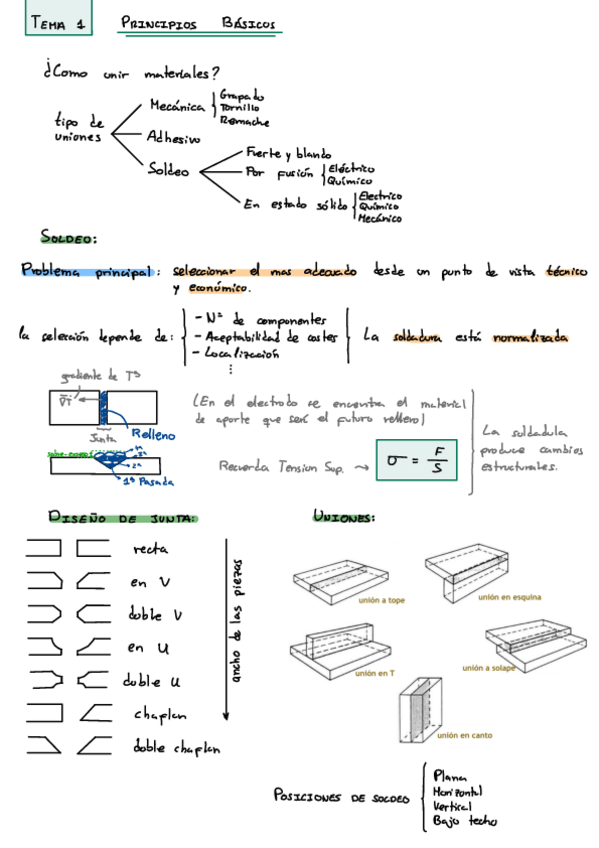 TEMA 1 PRINCIPIOS BÁSICOS
¿Como unir materiales?
tipo de uniones
Mecánica
Grapado
Tornillo
Remache
Adhesivo
Soldeo
Fuerte y blando
Por fusión
Eléctrico
Químico
En estado sólido
Electrico
Químico
Mecánico
SOLDEO:
Problema principal: seleccionar el mas adecuado desde un punto de vista técnico
y económico.
la selección depende de:
- Nº de componentes
- Aceptabilidad de costes
- Localización
⋮
La soldadura está normalizada
gradiente de Tª
∇T
Junta
Relleno
1ª Pasada
2ª
3ª
(En el electrodo se encuentra el material
de aporte que será el futuro relleno)
Recuerda Tension Sup. → σ = F/S
La soldadula
produce cambios
estructurales.
DISEÑO DE JUNTA:
recta
en V
doble V
en U
duble U
chaflan
doble chaflan
ancho de las piezas
UNIONES:
unión a tope
unión en esquina
unión en T
unión a solape
unión en canto
POSICIONES DE SOLDEO
Plana
Horizontal
Vertical
Bajo techo